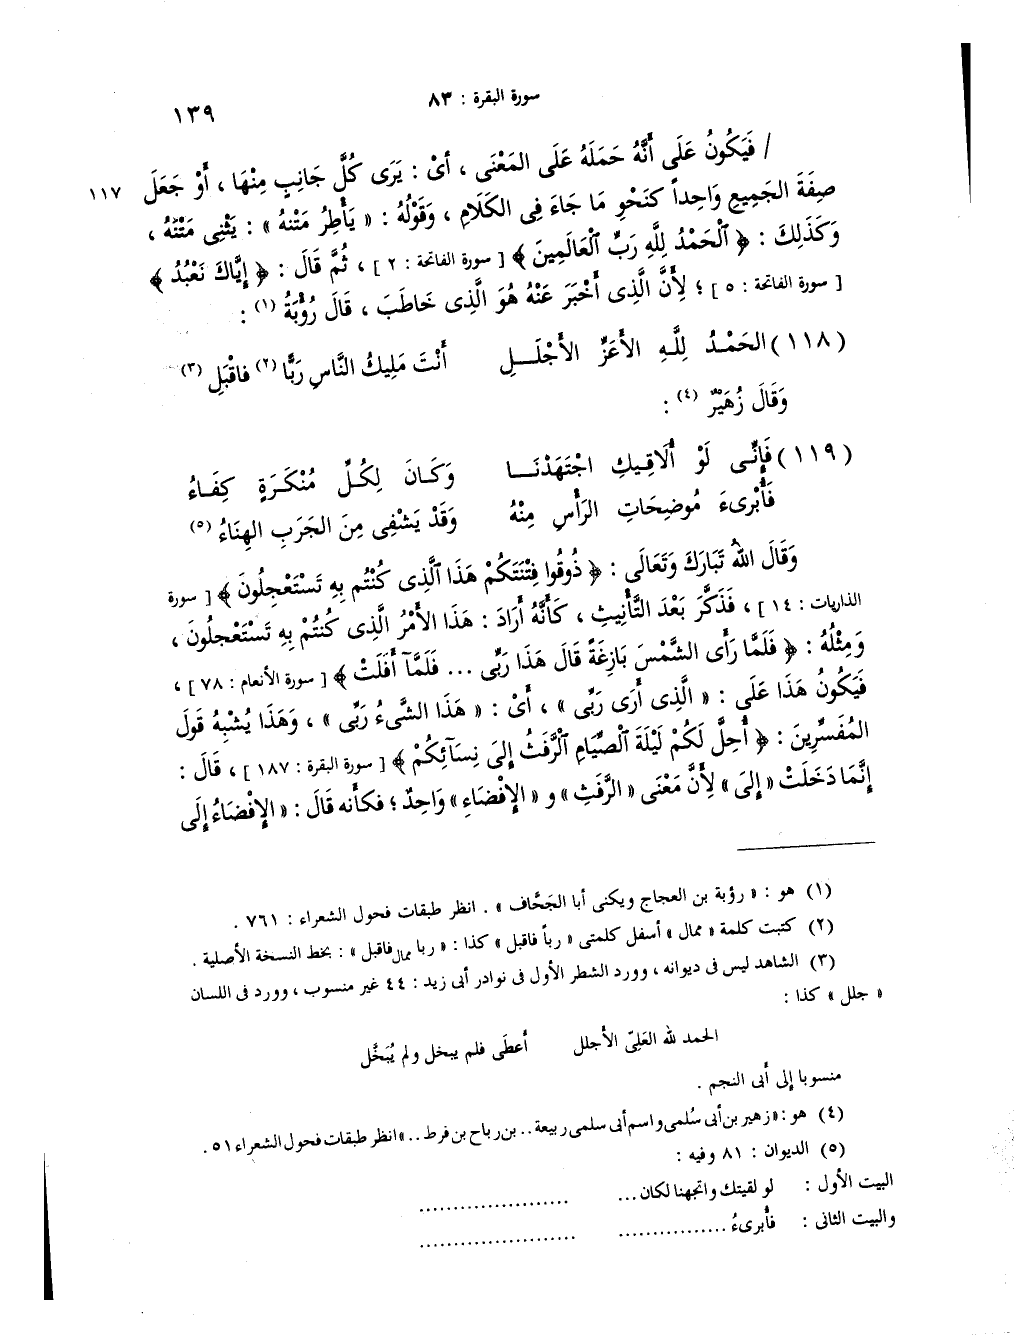 سورة البقرة : ٨٣
١٣٩
/ فَيَكُونُ عَلَى أَنَّهُ حَمَلَهُ عَلَى المَعْنَى ، أىْ : يَرَى كُلَّ جَانِبٍ مِنْهَا ، أَوْ جَعَلَ ١١٧
صِفَةَ الجَمِيعِ وَاحِداً كَنَحْوِ مَا جَاءَ فِى الكَلَامِ ، وَقَوْلُهُ : « يَأْطِرُ مَتْنهُ » : يَثْنِى مَتْنَهُ ،
وَكَذَلِكَ : ﴿ ٱلْحَمْدُ لِلَّهِ رَبِّ ٱلْعَالَمِينَ ﴾ [ سورة الفاتحة : ٢ ] ، ثُمَّ قَالَ : ﴿ إِيَّاكَ نَعْبُدُ ﴾
[ سورة الفاتحة : ٥ ] ؛ لِأَنَّ الَّذِى أَخْبَرَ عَنْهُ هُوَ الَّذِى خَاطَبَ ، قَالَ رُؤْبَةُ (١) :
(١١٨) الحَمْدُ لِلَّهِ الأَعَزِّ الأَجْلَـلِ أَنْتَ مَلِيكُ النَّاسِ رَبًّا (٢) فاقْبَلِ (٣)
وَقَالَ زُهَيْرٌ (٤) :
(١١٩) فَإِنِّى لَوْ أُلَاقِيكِ اجْتَهَدْنَـا وَكَانَ لِكُلِّ مُنْكَرَةٍ كِفَاءُ
فَأُبْرِىءَ مُوضِحَاتِ الرَأْسِ مِنْهُ وَقَدْ يَشْفِى مِنَ الجَرَبِ الهِنَاءُ (٥)
وَقَالَ اللهُ تَبَارَكَ وَتَعَالَى : ﴿ ذُوقُوا فِتْنَتَكُمْ هَذَا ٱلَّذِى كُنْتُم بِهِ تَسْتَعْجِلُونَ ﴾ [ سورة
الذاريات : ١٤ ] ، فَذَكَّرَ بَعْدَ التَّأْنِيثِ ، كَأَنَّهُ أَرَادَ : هَذَا الأَمْرُ الَّذِى كُنتُمْ بِهِ تَسْتَعْجِلُونَ ،
وَمِثْلُهُ : ﴿ فَلَمَّا رَأَى الشَّمْسَ بَازِغَةً قَالَ هَذَا رَبِّى ... فَلَمَّآ أَفَلَتْ ﴾ [ سورة الأنعام : ٧٨ ] ،
فَيَكُونُ هَذَا عَلَى : « الَّذِى أَرَى رَبِّى » ، أَىْ : « هَذَا الشَّىءُ رَبِّى » ، وَهَذَا يُشْبِهُ قَولَ
المُفَسِّرِينَ : ﴿ أُحِلَّ لَكُمْ لَيْلَةَ ٱلصِّيَامِ ٱلرَّفَثُ إِلَى نِسَآئِكُمْ ﴾ [ سورة البقرة : ١٨٧ ] ، قَالَ :
إِنَّمَا دَخَلَتْ « إِلَى » لِأَنَّ مَعْنَى « الرَّفَثِ » و « الإِفْضَاءِ » وَاحِدٌ ؛ فكأَنه قَالَ : « الإِفْضَاءُ إِلَى
(١) هو : « رؤبة بن العجاج ويكنى أبا الجَحَّاف » . انظر طبقات فحول الشعراء : ٧٦١ .
(٢) كتبت كلمة « ممال » أسفل كلمتى « رباً فاقبل » كذا : « ربا ممال فاقبل » : بخط النسخة الأصلية .
(٣) الشاهد ليس فى ديوانه ، وورد الشطر الأول فى نوادر أبى زيد : ٤٤ غير منسوب ، وورد فى اللسان
« جلل » كذا :
الحمد لله العَلِىّ الأجلل أعطَى فلم يبخل ولم يُبَخَّل
منسوبا إلى أبى النجم .
(٤) هو : « زهير بن أبى سُلمى واسم أبى سلمى ربيعة .. بن رباح بن قرط .. » انظر طبقات فحول الشعراء ٥١ .
(٥) الديوان : ٨١ وفيه :
البيت الأول : لو لقيتك واتجهنا لكان ... ......................
والبيت الثانى : فأُبرىءُ ................ ......................